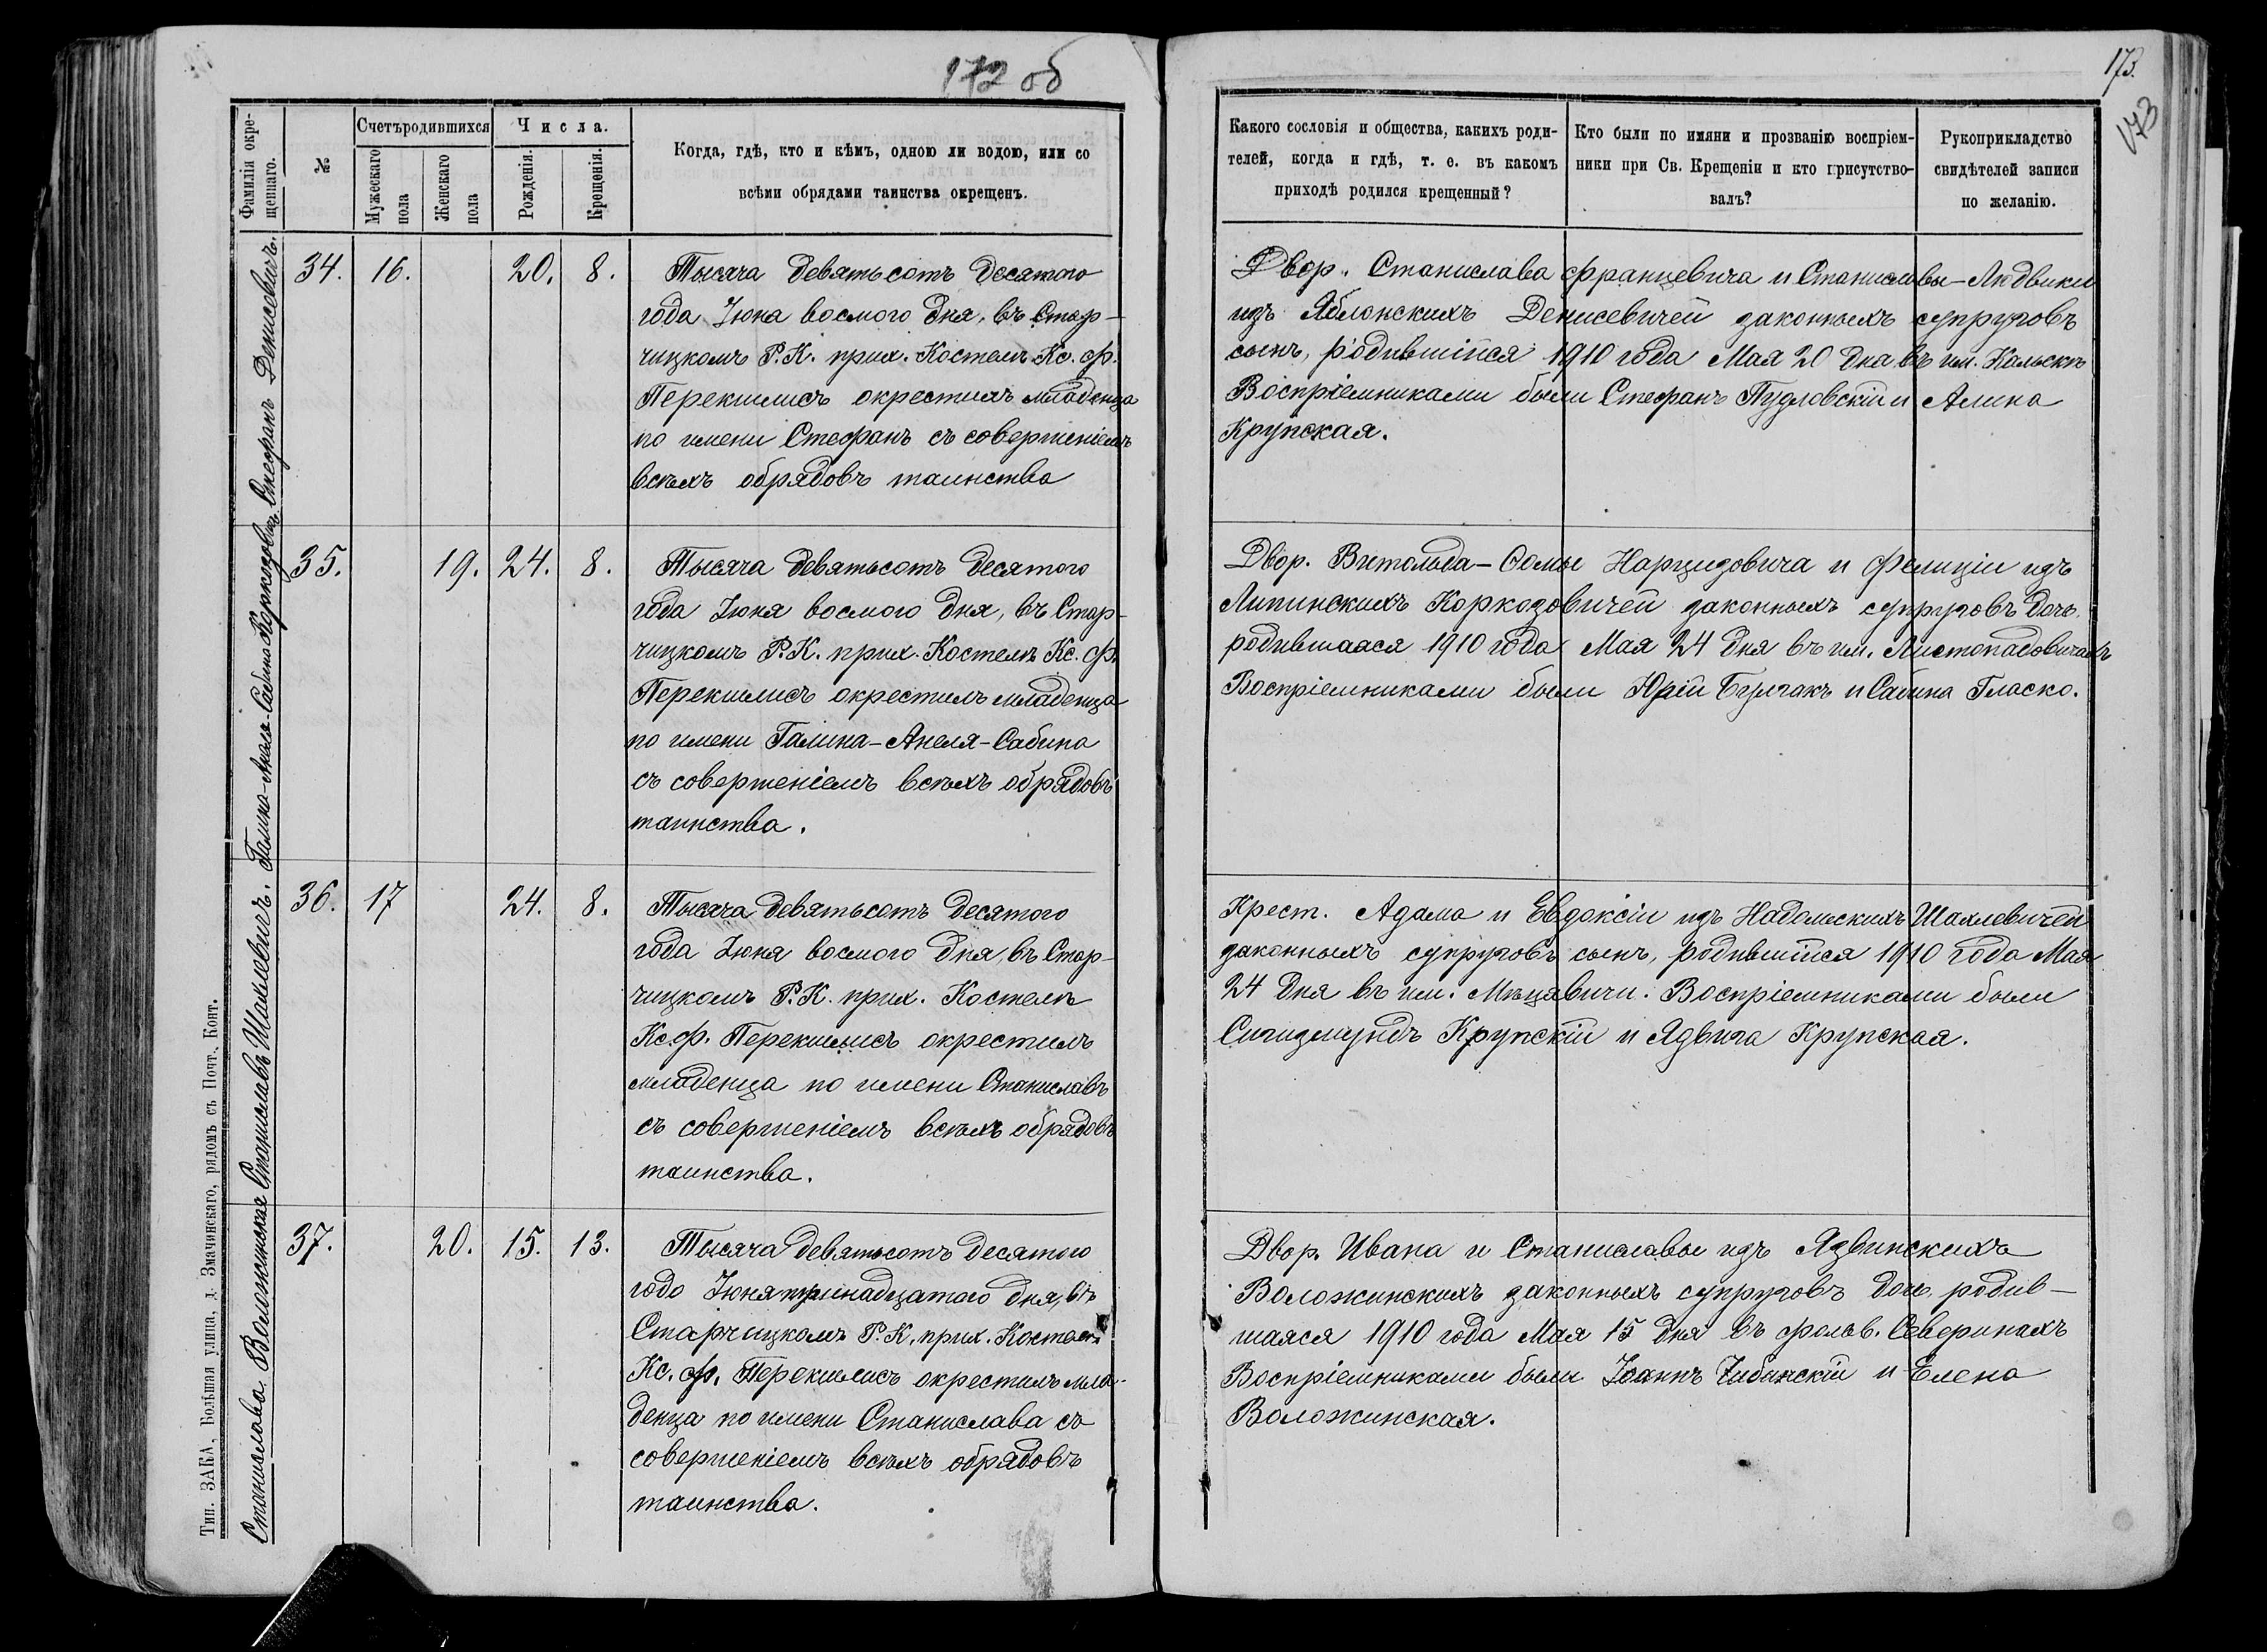 172 об
Фамилія окре-
щеннаго.
№
Счетъ родившихся
Мужескаго
пола
Женскаго
пола
Числа.
Рожденія.
Крещенія.
Когда, гдѣ, кто и кѣмъ, одною ли водою, или со
всѣми обрядами таинства окрещенъ.
Стефанъ Денисевичъ.
34. 16. 20. 8.
Тысяча девятьсотъ десятого
года Іюна восмого дня, въ Стар-
чицкомъ Р.К. прих. Костелѣ Кс. Ф.
Перекшлисъ окрестилъ младенца
по имени Стефанъ съ совершеніемъ
всѣхъ обрядовъ таинства
Галина-Анеля-Сабина Коркозовичъ.
35. 19. 24. 8.
Тысяча девятьсотъ десятого
года Іюня восмого дня, въ Стар-
чицкомъ Р.К. прих. Костелѣ Кс. Ф.
Перекшлисъ окрестилъ младенца
по имени Галина-Анеля-Сабина
съ совершеніемъ всѣхъ обрядовъ
таинства.
Станиславъ Шахлевичъ.
36. 17 24. 8.
Тысяча девятьсотъ десятого
года Іюня восмого дня, въ Стар-
чицкомъ Р.К. прих. Костелѣ
Кс. Ф. Перекшлисъ окрестилъ
младенца по имени Станиславъ
съ совершеніемъ всѣхъ обрядовъ
таинства.
Станислава Воложинская
37. 20. 15. 13.
Тысяча девятьсотъ десятого
годо Іюня тринадцатого дня, въ
Старчицкомъ Р.К. прих. Костелѣ
Кс. Ф. Перекшлисъ окрестилъ мла-
денца по имени Станислава съ
совершеніемъ всѣхъ обрядовъ
таинства.
Тип. ЗАКА, Большая улица, д. Змачинскаго, рядомъ съ Почт. Конт.
173.
173
Какого сословія и общества, какихъ роди-
телей, когда и гдѣ, т. е. въ какомъ
приходѣ родился крещенный?
Кто были по имяни и прозванію воспріем-
ники при Св. Крещеніи и кто присутство-
валъ?
Рукоприкладство
свидѣтелей записи
по желанію.
Двор. Станислава Францевича и Станиславы-Людвики
изъ Яблонскихъ Денисевичей законныхъ супруговъ
сынъ, родившійся 1910 года Мая 20 дня въ им. Кальскъ
Воспріемниками были Стефанъ Пудловскій и Алина
Крупская.
Двор. Витольда-Ѳомы Нарцизовича и Фелиціи изъ
Липинскихъ Коркозовичей законныхъ супруговъ дочь
родившаяся 1910 года Мая 24 дня въ им. Листопадовичахъ
Воспріемниками были Юрій Булгакъ и Сабина Гласко.
Крест. Адама и Евдоксіи изъ Надольскихъ Шахлевичей
законныхъ супруговъ сынъ, родившійся 1910 года Мая
24 дня въ им. Мѣцявичи. Воспріемниками были
Сигизмундъ Крупскій и Ядвига Крупская.
Двор. Ивана и Станиславы изъ Язвинскихъ
Воложинскихъ законныхъ супруговъ дочь родив-
шаяся 1910 года Мая 15 дня въ фольв. Северинахъ
Воспріемниками были Іоаннъ Чибинскій и Елена
Воложинская.